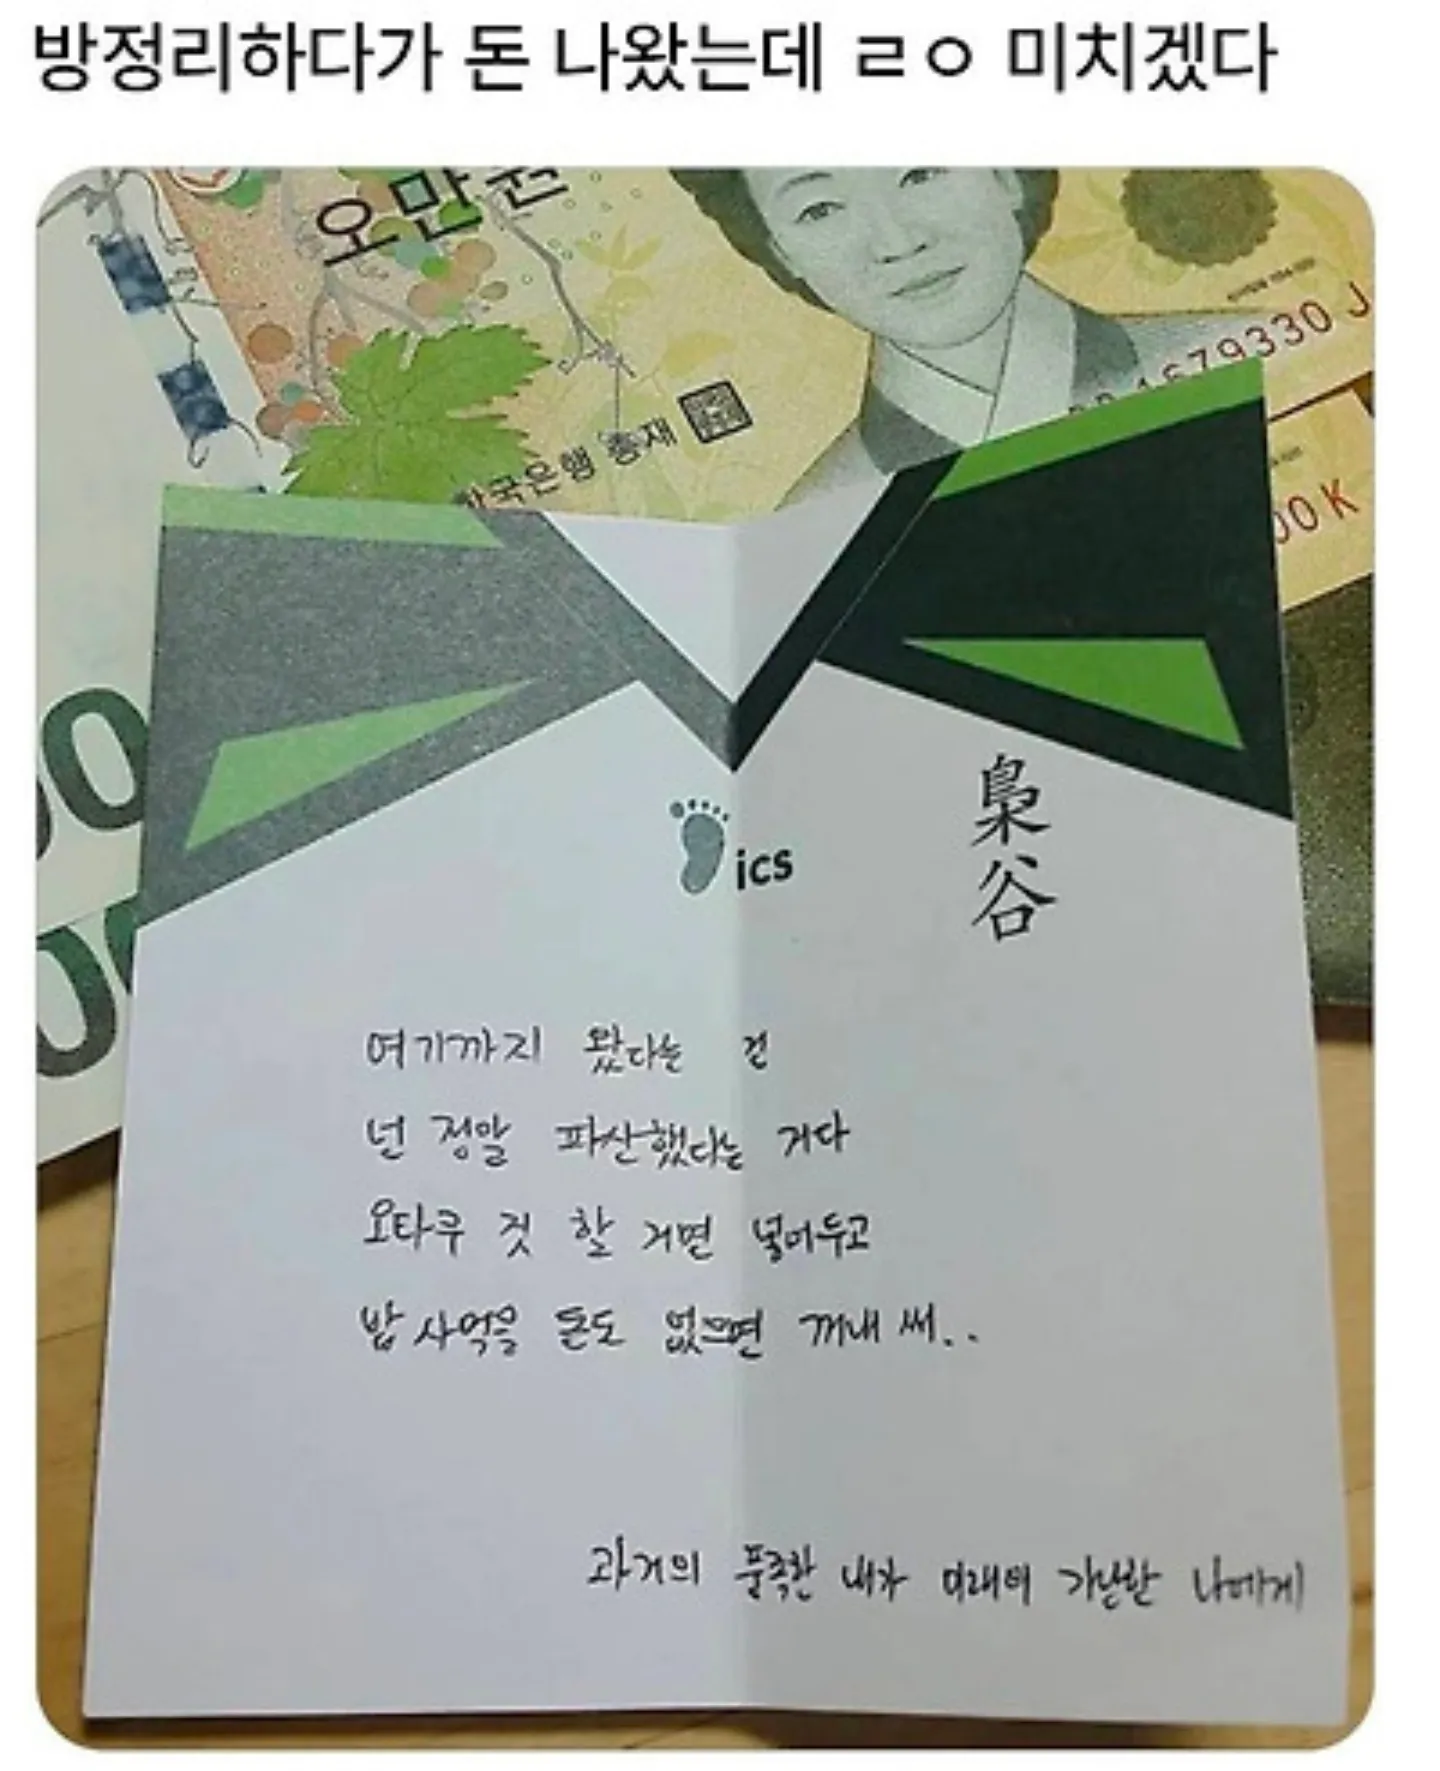 방정리하다가 돈 나왔는데 ㄹㅇ 미치겠다
오만원
한국은행 총재
1679330 J
00K
00
00
ics
梟谷
여기까지 왔다는 건
넌 정말 파산했다는 거다
오타쿠 짓 할 거면 넣어두고
밥 사먹을 돈도 없으면 꺼내 써..
과거의 풍족한 내가 미래의 가난한 나에게